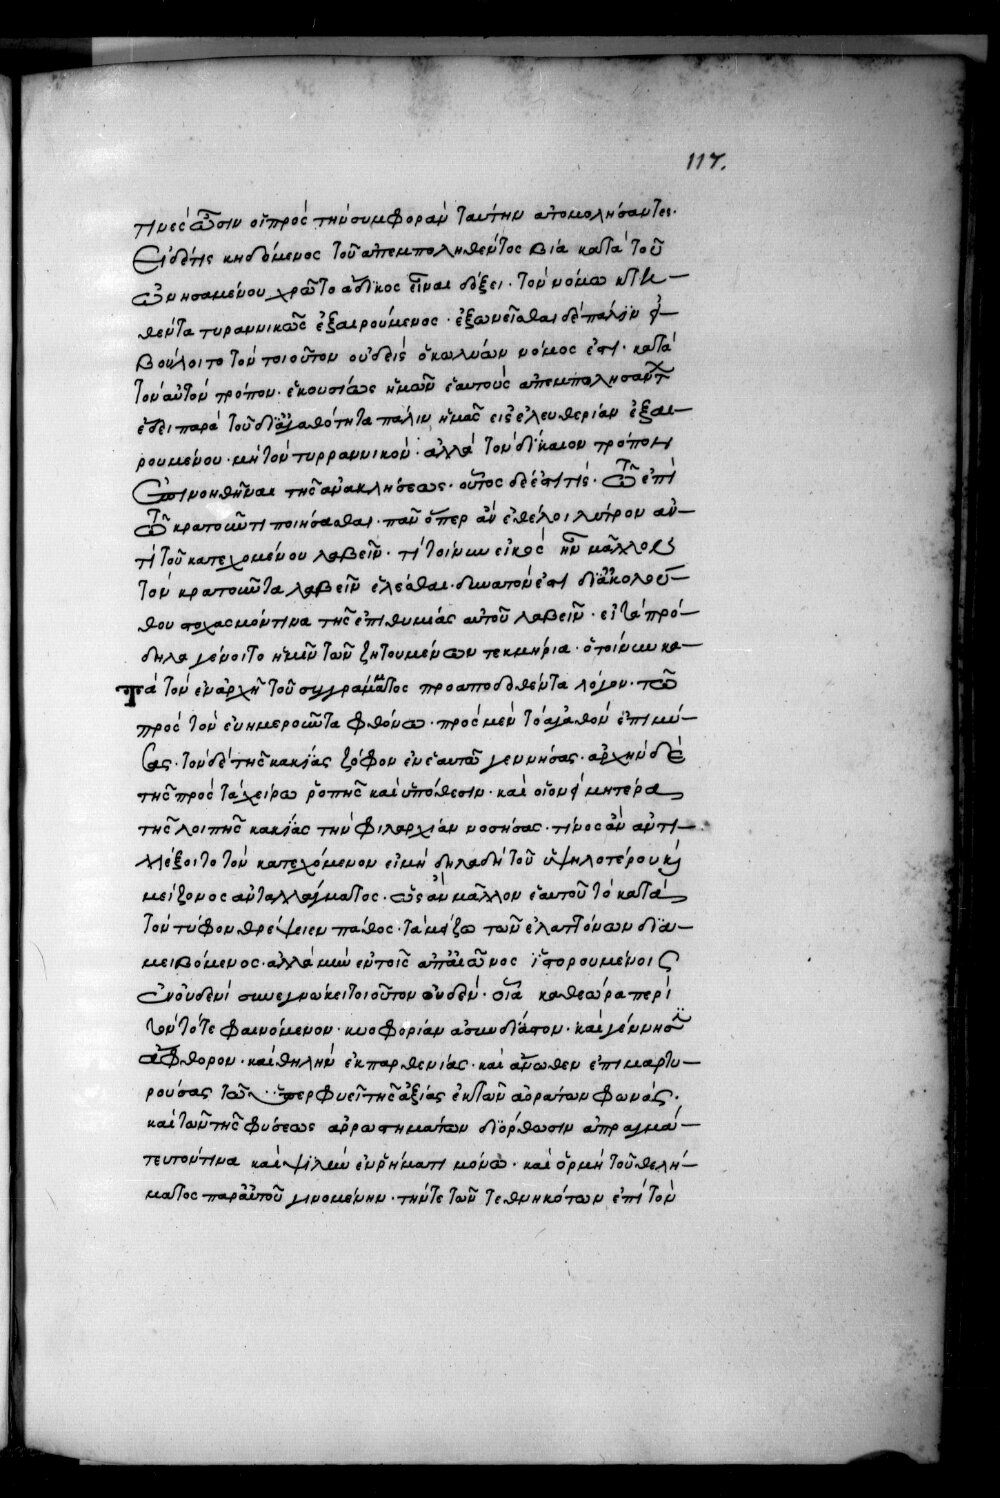 117.
τινές ὦσιν οἱ πρός τήν συμφοράν ταύτην αὐτομολήσαντες·
Εἰ δέ τις κηδόμενος τοῦ ἀπεμποληθέντος βία κατά τοῦ
ὠνησαμένου χρῶτο ἄδικος εἶναι δόξει· τόν νόμω κτη—
θέντα τυραννικῶς ἐξαιρούμενος· ἐξωνεῖσθαι δέ πάλιν εἰ—
βούλοιτο τόν τοιοῦτον οὐδείς ὁ κωλύων νόμος ἐστι· κατά
τόν αὐτόν τρόπον· ἑκουσίως ἡμῶν ἑαυτούς ἀπεμπολησαντ
ἔδει παρά τοῦ δι ἀγαθότητα πάλιν ἡμᾶς εις ἐλευθερίαν ἐξαι—
ρουμένου· μή τόν τυρραννικόν· ἀλλά τόν δίκαιον τρόπον
ἐπινοηθῆναι τῆς ἀνακλήσεως· οὗτος δέ ἐστί τίς· τῶ ἐπί
τῶ κρατοῦντι ποιήσασθαι· πᾶν ὅπερ ἄν ἐθέλοι λύτρον ἀν—
τί τοῦ κατεχομένου λαβεῖν· τί τοίνυν εἰκός ἦν μᾶλλον
τόν κρατοῦντα λαβεῖν ἑλέσθαι· δυνατόν ἐστι δι ἀκολού—
θου στοχασμόν τινα τῆς ἐπιθυμίας αὐτοῦ λαβεῖν· εἰ τά πρό—
δηλα γένοιτο ἡμῖν τῶν ζητουμένων τεκμήρια· ὁ τοίνυν κα—
τά τόν ἐν ἀρχῆ τοῦ συγράμματος προαποδοθέντα λόγον· τῶ
πρός τόν εὐημεροῦντα φθόνω· πρός μέν τό ἀγαθόν ἐπιμύ—
σας· τόν δέ τῆς κακίας ζόφον ἐν ἑαυτῶ γεννήσας· ἀρχήν δέ
τῆς πρός τά χείρω ῥοπῆς καί ὑπόθεσιν· καί οἱονεί μητέρα
τῆς λοιπῆς κακίας τήν φιλαρχίαν νοσήσας· τίνος ἄν ἀντι—
λλέξοιτο τόν κατεχόμενον εἰ μή δηλαδή τοῦ ὑψηλοτέρου κ
μείζονος ἀνταλλάγματος· ὡς ἄν μᾶλλον ἑαυτοῦ τό κατά
τόν τύφον θρέψειεν πάθος· τά μείζω τῶν ἐλαττόνων δια—
μειβόμενος· ἀλλά μήν ἐν τοῖς ἀπ αἰῶνος ἱστορουμένοις
ἐν οὐδενί συνεγνώκει τοιοῦτον οὐδέν· οἷα καθεώρα περί
τόν τότε φαινόμενον· κυοφορίαν ἀσυνδίαστον· καί γέννησιν
ἄφθορον· καί θηλήν ἐκ παρθενίας· καί ἄνωθεν ἐπιμαρτυ—
ρούσας τῶ ὑπερφυεῖ τῆς ἀξίας ἐκ τῶν ἀοράτων φωνάς·
καί τῶν τῆς φύσεως ἀρρωστημάτων διόρθωσιν ἀπραγμά—
τευτόν τινα καί ψιλήν ἐν ῥήματι μόνω· καί ὁρμῆ τοῦ θελή—
ματος παρ αὐτοῦ γινομένην· τήν τε τῶν τεθνηκότων ἐπί τόν